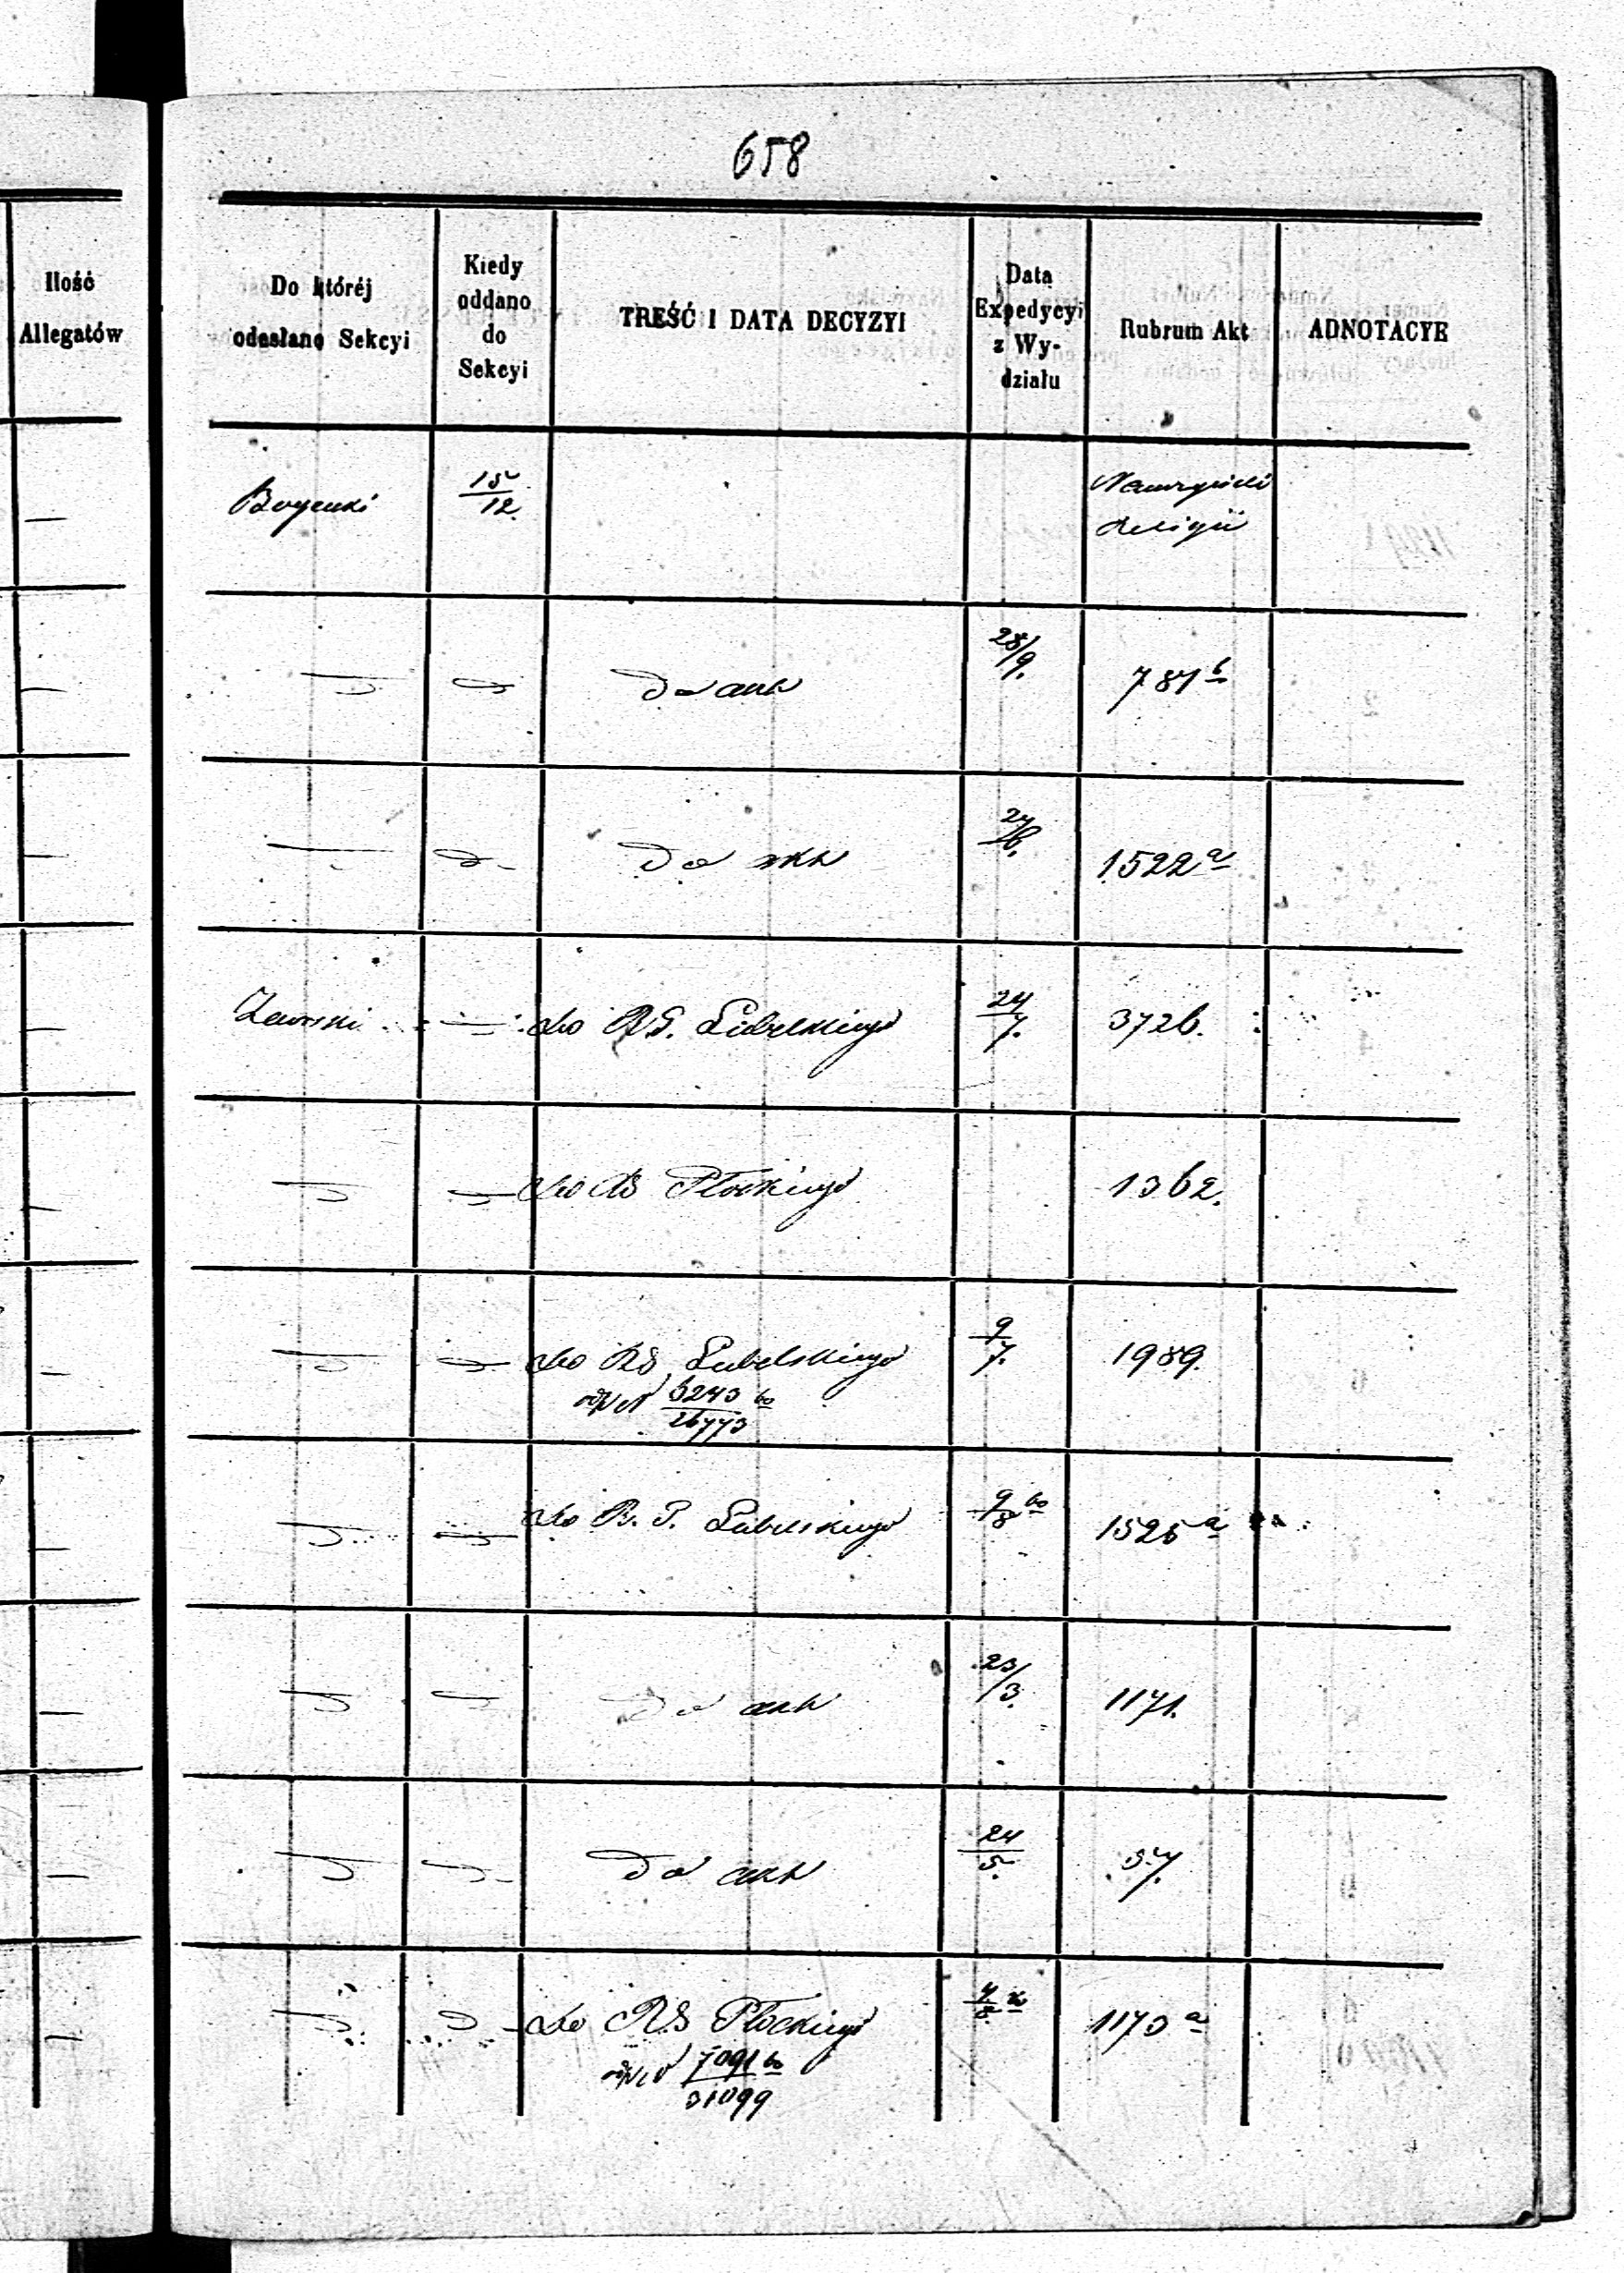 658
Ilość
Allegatów
Do któréj
odesłano Sekcyi
Kiedy
oddano
do
Sekcyi
TREŚĆ I DATA DECYZYI
Data
Expedycyi
z Wy-
działu
Rubrum Akt
ADNOTACYE
15/12.
Religii
do akt
28/9.
787 b
do akt
24/6.
1522 a
do R. G. Lubelskiego
24/7.
3726.
do RG Płockiego
1362.
do RG Lubelskiego
9/7.
1989.
6243/26773
do R. G. Lubelskiego
9/8
1525 a
do akt
23/3.
1171.
do akt
24/5.
37.
do RG Płockiego
4/8
1173 a
7091/31099